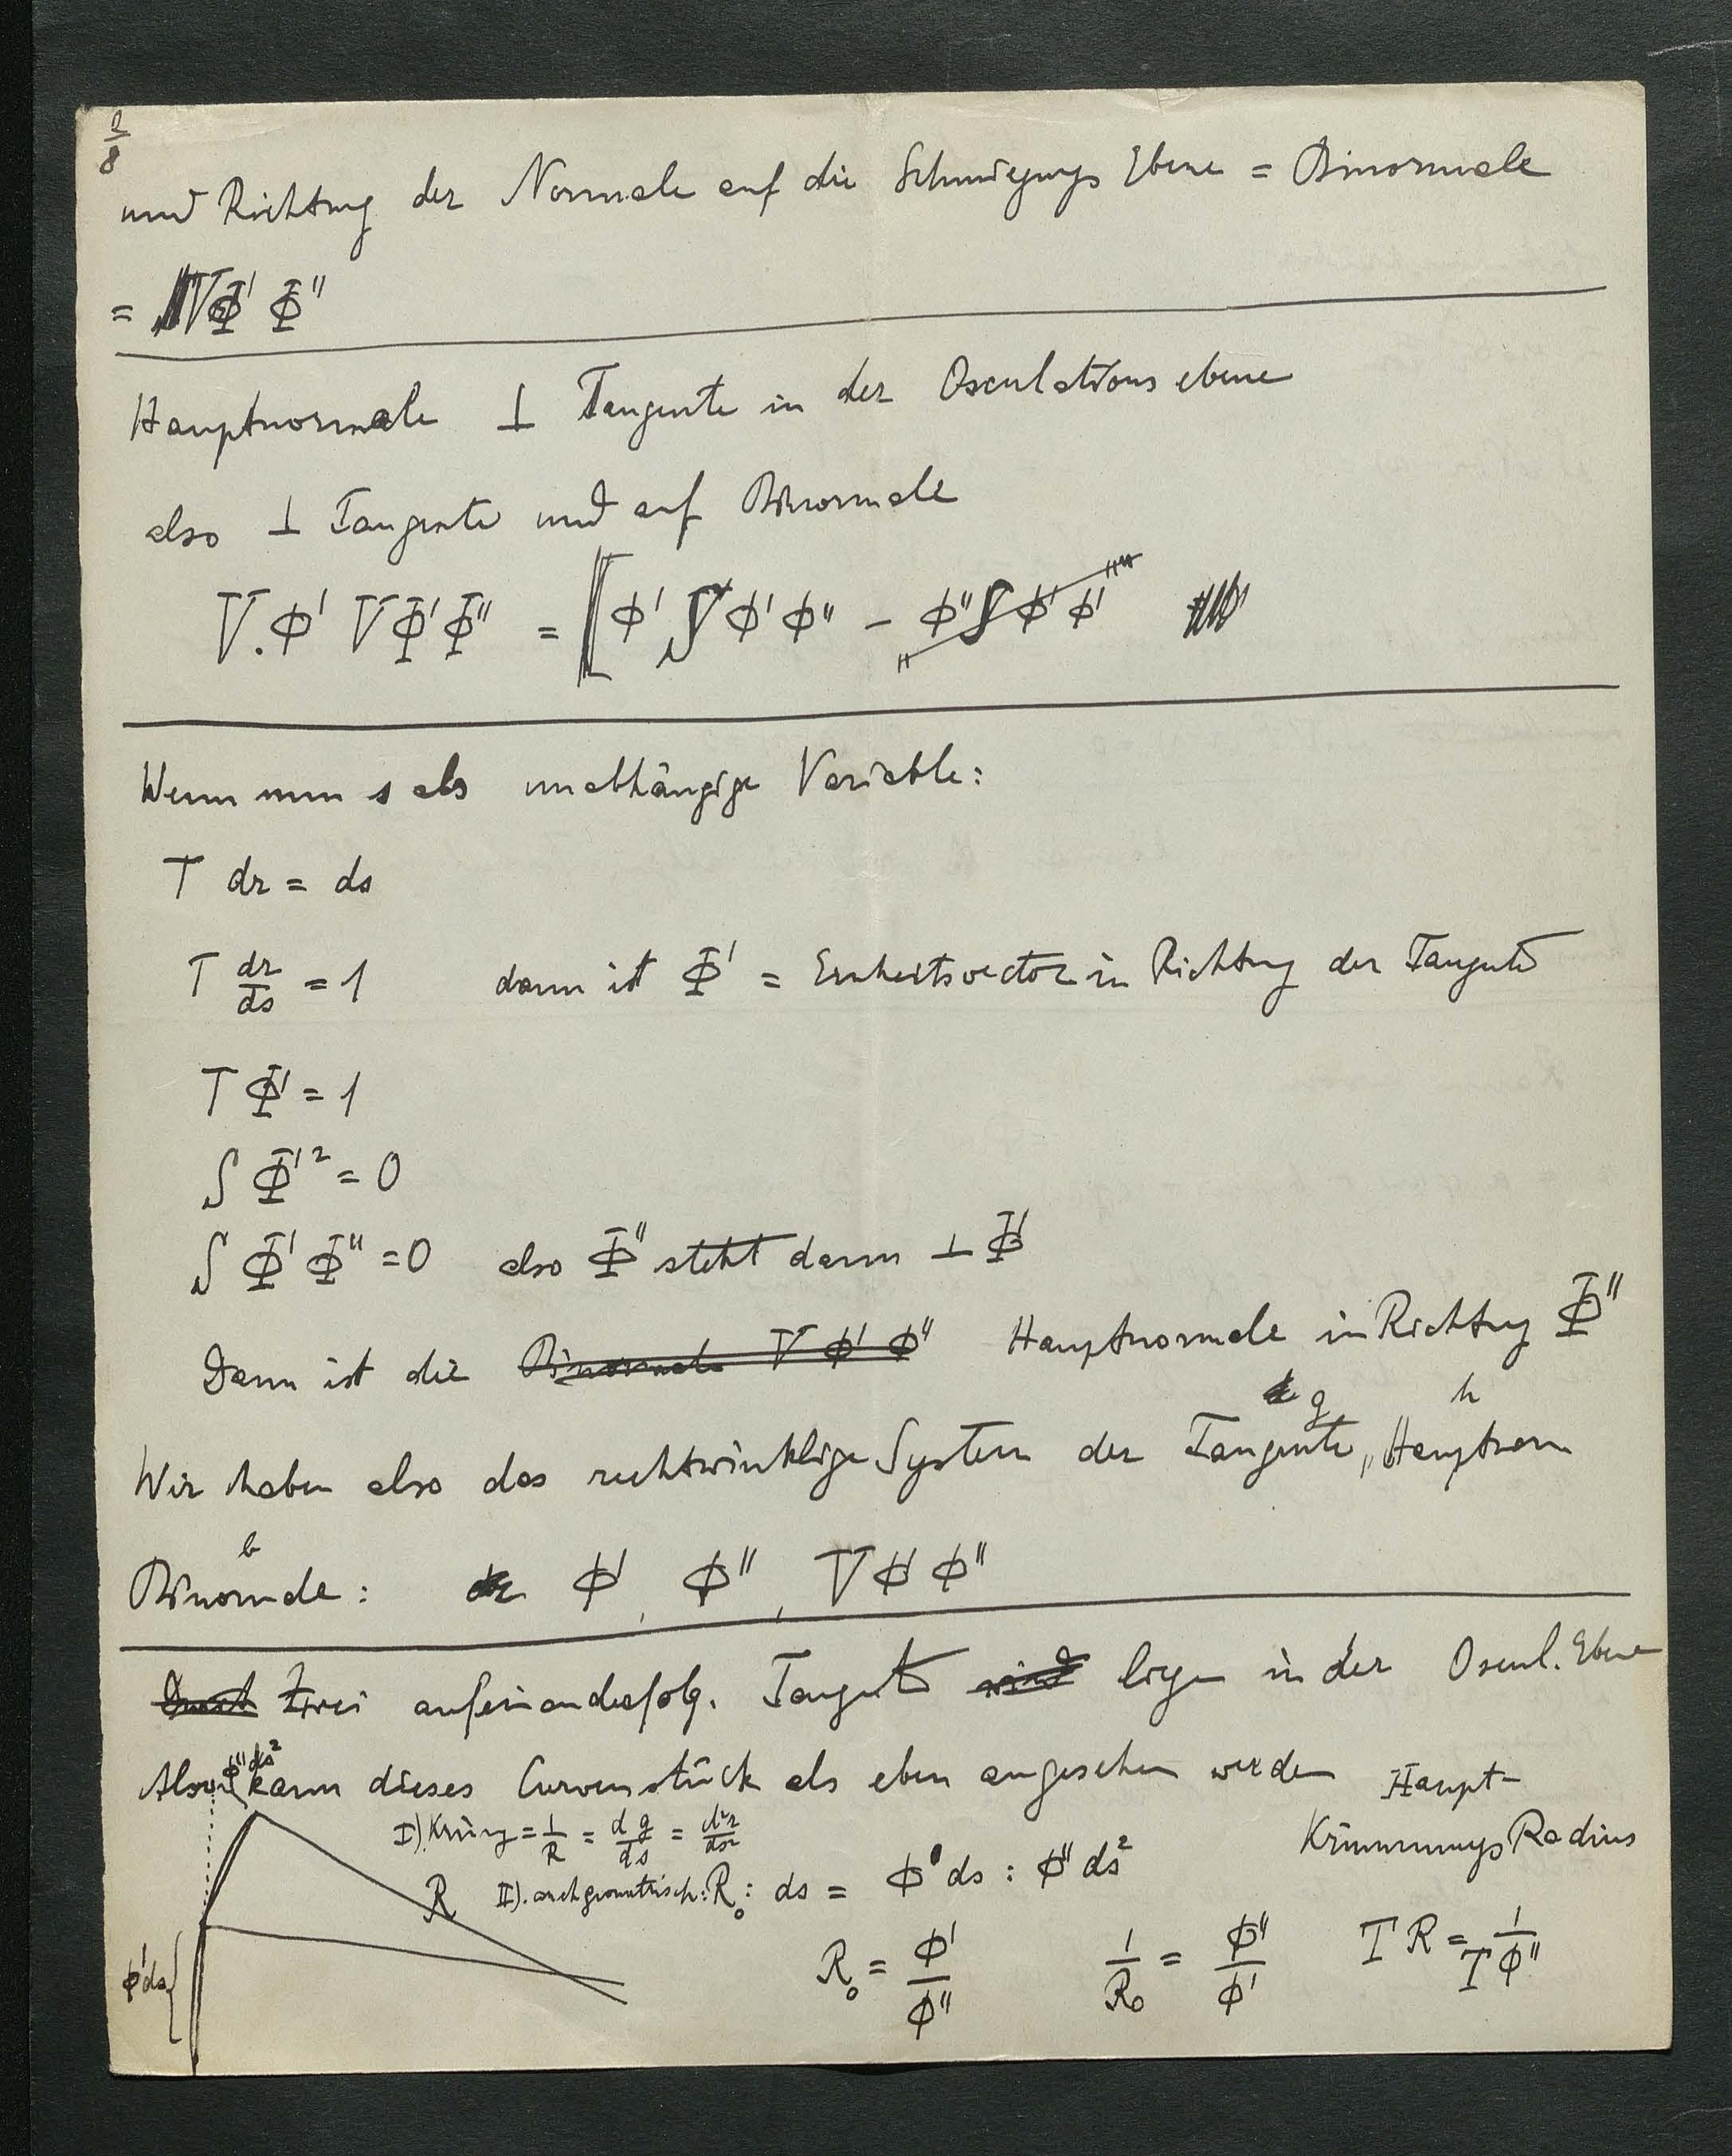 2/8
und Richtung der Normale auf die Schmiegungs Ebene = Binormale
= VΦ' Φ''
Hauptnormale ⊥ Tangente in der Osculations ebene
also ⊥ Tangente und auf Binormale
V.Φ' VΦ'Φ'' = [Φ' S Φ' Φ'' − Φ'' S Φ' Φ'
Wenn nun s als unabhängige Variable:
T dr = ds
T dr/ds = 1 dann ist Φ' = Einheitsvector in Richtung der Tangente
T Φ' = 1
S Φ'² = 0
S Φ' Φ'' = 0 also Φ'' steht dann ⊥ Φ'
Dann ist die Binormale V Φ' Φ'' Hauptnormale in Richtung Φ''
g h
Wir haben also das rechtwinklige System der Tangente, Hauptnorm
b
Binormale: Φ', Φ'', V Φ' Φ''
Durch Zwei aufeinanderfolg. Tangent sind liegen in der Oscul. Ebene
Φ'' ds²
Also kann dieses Curvenstück als eben angesehen werden Haupt-
KrümmungsRadius
I). Krümg = 1/R = dg/ds = d²r/ds²
R II). auch geometrisch: R₀ : ds = Φ' ds : Φ'' ds²
Φ'ds R₀ = Φ'/Φ'' 1/R₀ = Φ''/Φ' T R = 1/TΦ''